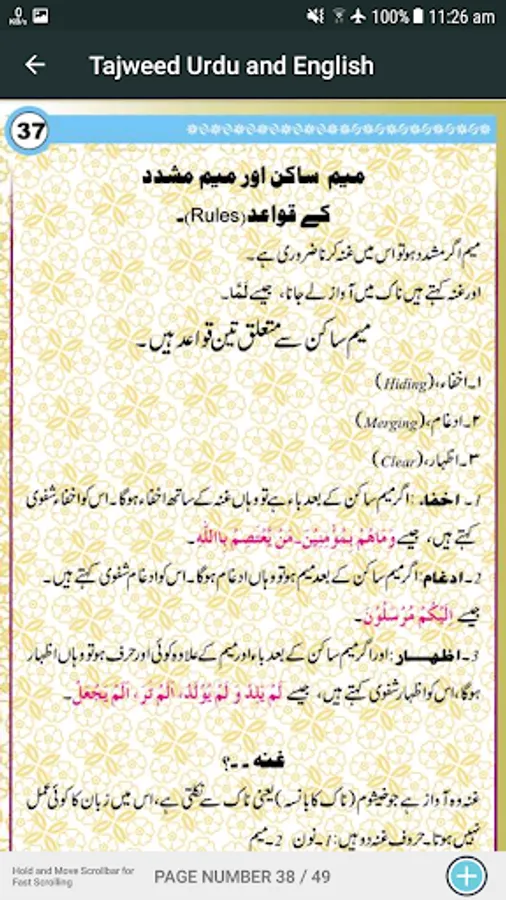 0 KB/s 100% 11:26 am
Tajweed Urdu and English
37
میم ساکن اور میم مشدد
کے قواعد(Rules)۔
میم اگر مشدد ہو تو اس میں غنہ کرنا ضروری ہے۔
اور غنہ کہتے ہیں ناک میں آواز لے جانا، جیسے لَمَّا۔
میم ساکن سے متعلق تین قواعد ہیں۔
۱۔اخفاء،(Hiding)
۲۔ادغام،(Merging)
۳۔اظہار،(Clear)
1۔اخفاء: اگر میم ساکن کے بعد باء ہے تو وہاں غنہ کے ساتھ اخفاء ہوگا۔ اس کو اخفاء شفوی
کہتے ہیں، جیسے وَمَاهُمْ بِمُؤْمِنِيْنَ۔مَنْ يَّعْتَصِمْ بِاللّٰهِ۔
2۔ادغام: اگر میم ساکن کے بعد میم ہو تو وہاں ادغام ہوگا۔ اس کو ادغام شفوی کہتے ہیں۔
جیسے اِلَيْكُمْ مُرْسَلُوْنَ۔
3۔اظہار: اور اگر میم ساکن کے بعد باء اور میم کے علاوہ کوئی اور حرف ہو تو وہاں اظہار
ہوگا، اس کو اظہار شفوی کہتے ہیں، جیسے لَمْ يَلِدْ وَ لَمْ يُوْلَدْ، اَلَمْ تَرَ، اَلَمْ يَجْعَلْ۔
غنہ ۔۔؟
غنہ وہ آواز ہے جو خیشوم (ناک کا بانسہ) یعنی ناک سے نکلتی ہے، اس میں زبان کا کوئی عمل
نہیں ہوتا۔ حروف غنہ دو ہیں: 1۔نون 2۔میم
Hold and Move Scrollbar for
Fast Scrolling
PAGE NUMBER 38 / 49